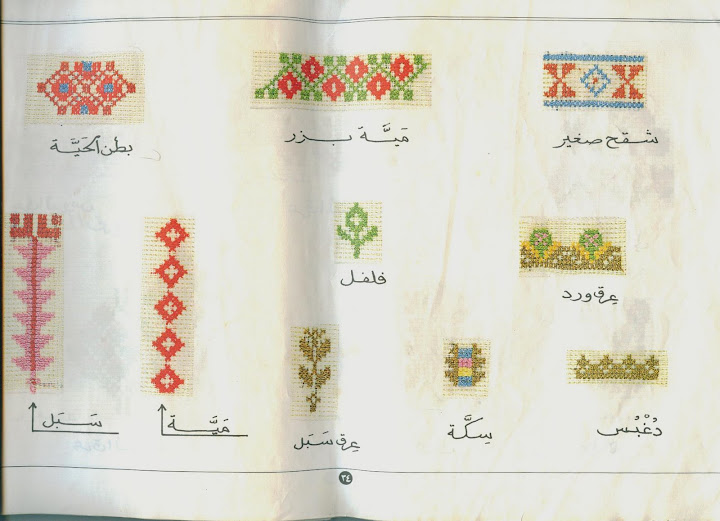 شقح صغير
مَيَّة بزر
بطن الحَيَّة
فلفل
عِرق ورد
دُغْبُس
سِكَّة
عِرق سَبَل
مَيَّة
سَبَل
٣٤